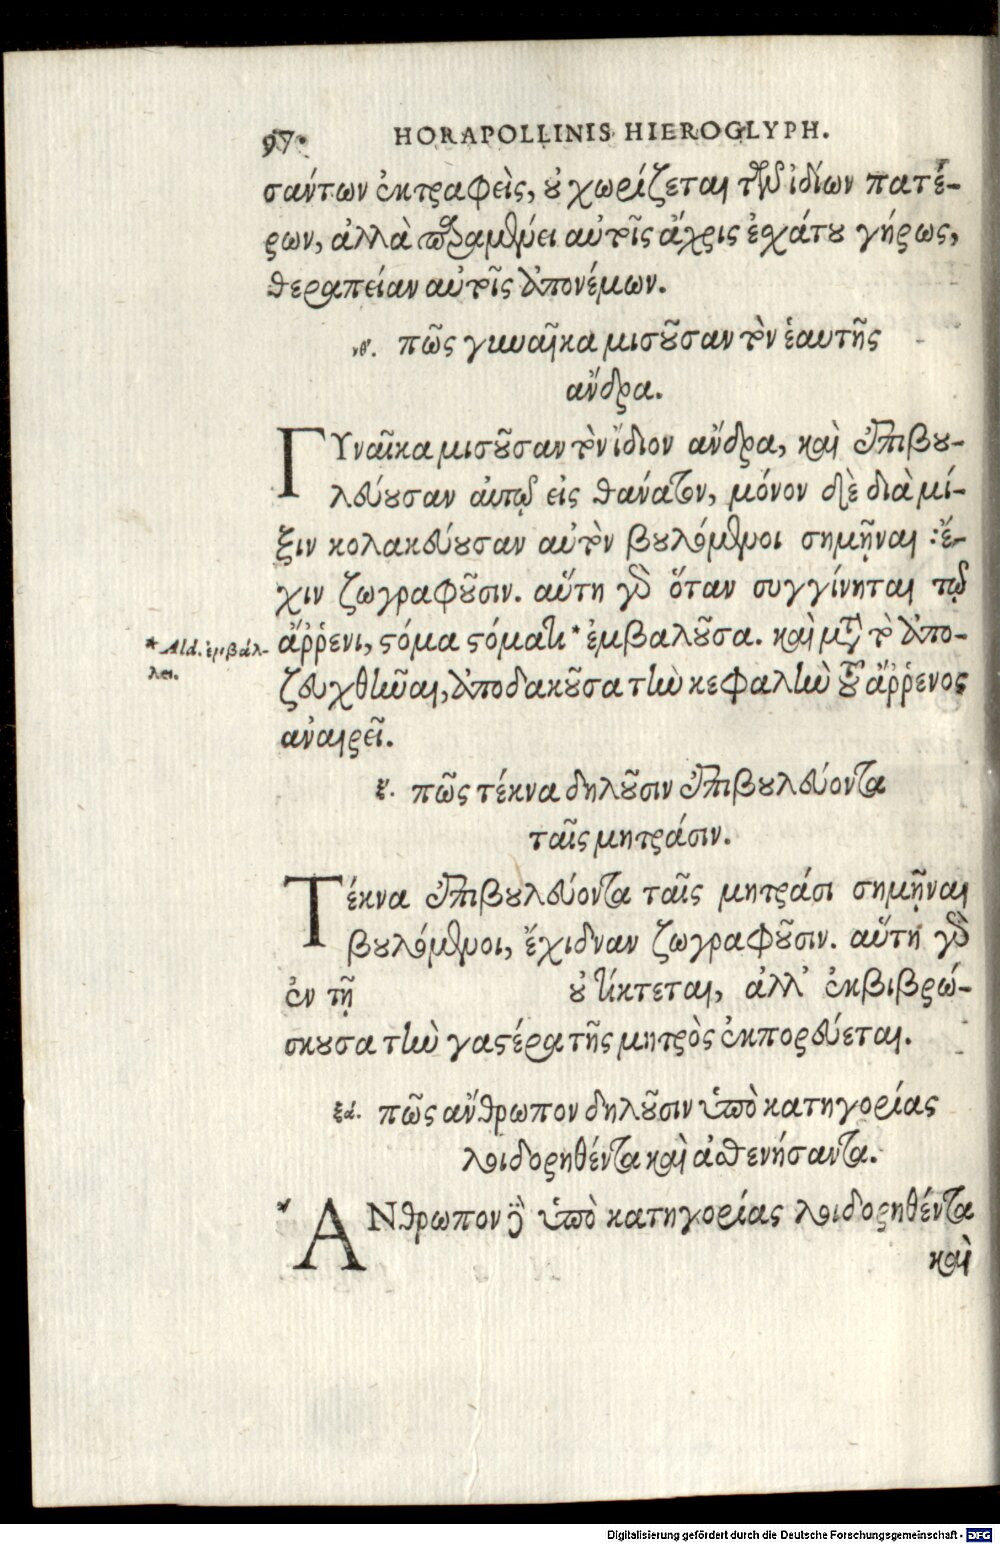 97. HORAPOLLINIS HIEROGLYPH.
σάντων ἐκτραφεὶς, οὐ χωρίζεται τῶν ἰδίων πατέ-
ρων, ἀλλὰ παραμένει αὐτοῖς ἄχρις ἐσχάτου γήρως,
θεραπείαν αὐτοῖς ἀπονέμων.
νθ'. πῶς γυναῖκα μισοῦσαν τὸν ἑαυτῆς
ἄνδρα.
ΓΥναῖκα μισοῦσαν τὸν ἴδιον ἄνδρα, καὶ ἐπιβου-
λεύουσαν αὐτῷ εἰς θάνατον, μόνον δὲ διὰ μί-
ξιν κολακεύουσαν αὐτὸν βουλόμενοι σημῆναι ἔ-
χιν ζωγραφοῦσιν. αὕτη γὰρ ὅταν συγγίνηται τῷ
ἄῤῥενι, στόμα στόματι * ἐμβαλοῦσα. καὶ μετὰ τὸ ἀπο-
* Ald. ἐμβάλ-
λει.
ζευχθῆναι, ἀποδακοῦσα τὴν κεφαλὴν τοῦ ἄῤῥενος
ἀναιρεῖ.
ξ'. πῶς τέκνα δηλοῦσιν ἐπιβουλεύοντα
ταῖς μητράσιν.
Τέκνα ἐπιβουλεύοντα ταῖς μητράσι σημῆναι
βουλόμενοι, ἔχιδναν ζωγραφοῦσιν. αὕτη γὰρ
ἐν τῇ οὐ τίκτεται, ἀλλ' ἐκβιβρώ-
σκουσα τὴν γαστέρα τῆς μητρὸς ἐκπορεύεται.
ξά. πῶς ἄνθρωπον δηλοῦσιν ὑπὸ κατηγορίας
λοιδορηθέντα καὶ ἀσθενήσαντα.
ἌΝθρωπον ὑπὸ κατηγορίας λοιδορηθέντα
καὶ
Digitalisierung gefördert durch die Deutsche Forschungsgemeinschaft - DFG